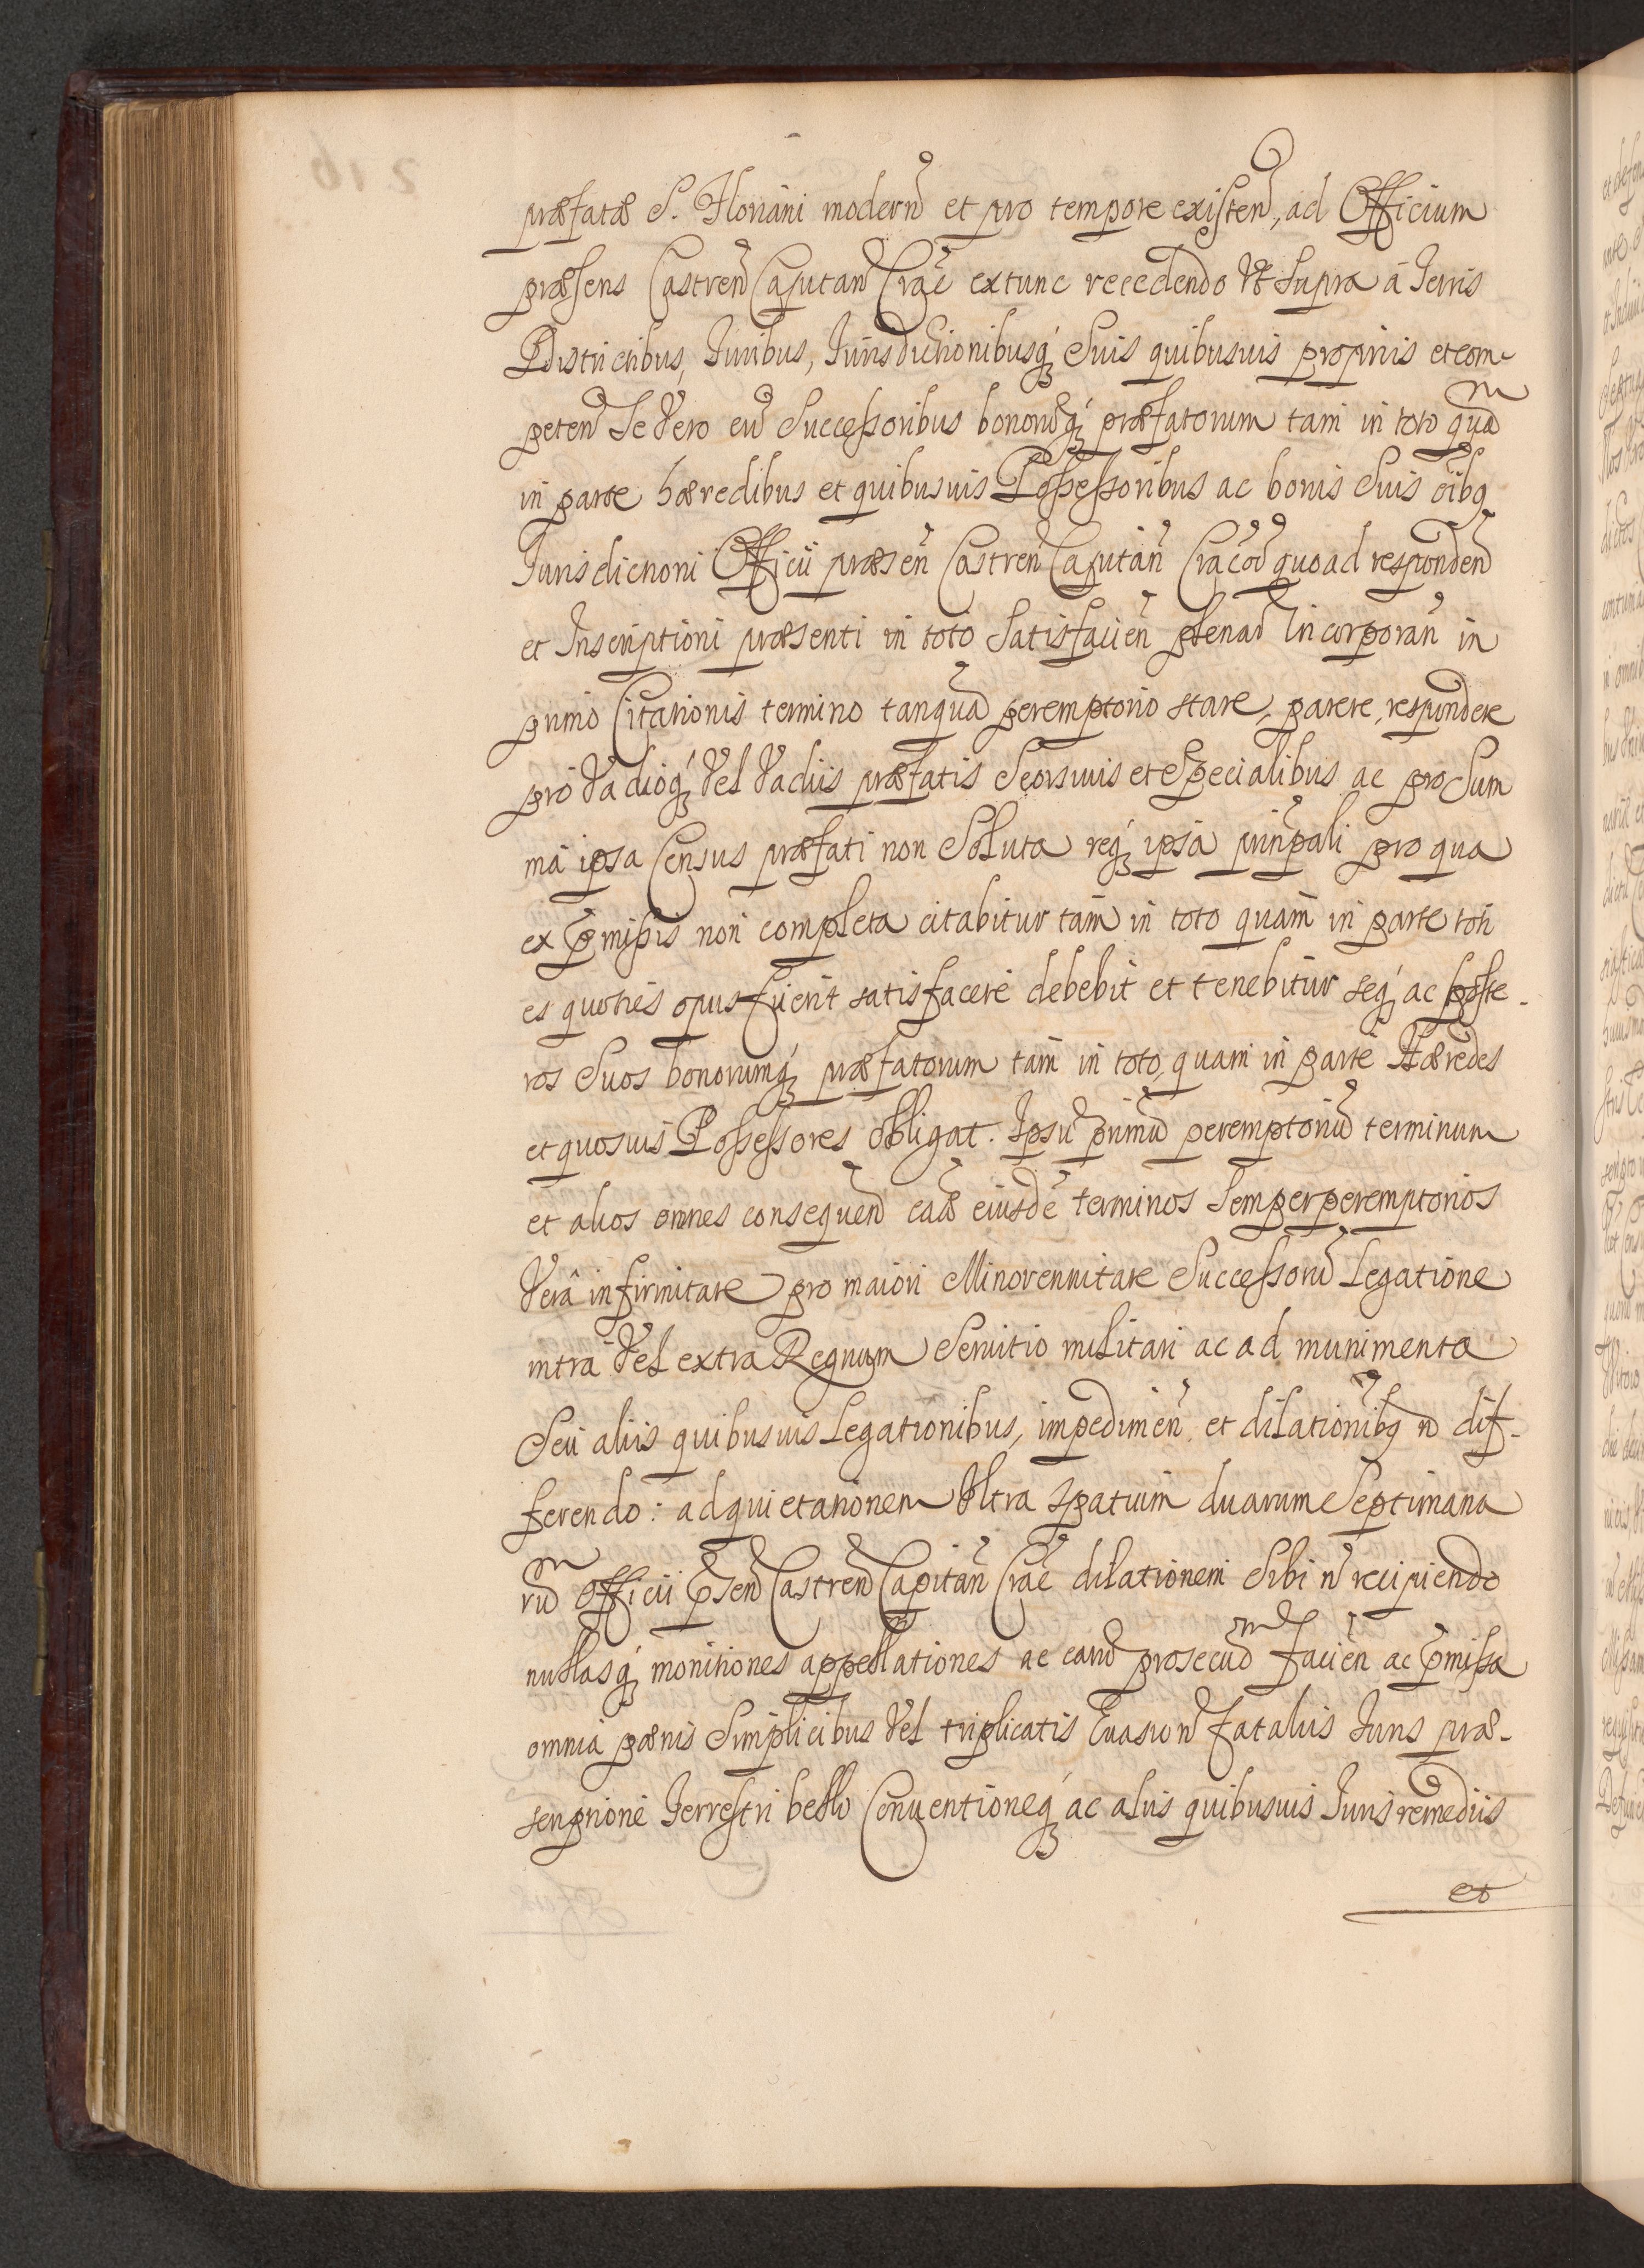 præfatæ S. Floriani modern̄ et pro tempore existen̄, ad Officium
præsens Castren̄ Capitan̄ Crac̄ extunc recedendo Vt Supra â Terris
Districtibus, Iuribus, Iurisdictionibusq́ Suis quibusuis proprijs et com-
peten̄ Se Vero eiū Successoribus bonorūq́ præfatorum tam in toto quā
in parte hæredibus et quibusuis Possessoribus ac bonis Suis oībq
Jurisdictioni Officii præsen̄ Castren̄ Capitan̄ Cracōū quoad responden̄
et Inscriptioni præsenti in toto Satisfacien̄ plenar̄ Incorporan̄ in
primo Citationis termino tanquā peremptorio stare, parere, respondere
pro Vadioq́ Vel Vadiis præfatis Seorsiuis et Specialibus ac pro Sum
mâ ipsa Census præfati non Soluta req́ ipsâ prin̄pali pro qua
ex p̄missis non completa citabitur tam in toto quam in parte toti
es quoties opus fuerit satisfacere debebit et tenebitur seq́ ac poste-
ros Suos bonorumq́ præfatorum tam in toto, quam in parte Hæredes
et quosuis Possessores obligat. Ipsū primū peremptoriū terminum
et alios omnes consequen̄ caū eiusdē terminos Semper peremptorios
Verâ infirmitate pro maiori Minorennitate Successorū Legatione
intra Vel extra Regnum Seruitio militari ac ad munimenta
Seu aliis quibusuis Legationibus, impedimen̄ et dilationibq n̄ dif-
ferendo: ad quietationem Vltra spatium duarum Septimana
rū Officii p̄sen̄ Castren̄ Capitan̄ Crac̄ dilationem Sibi n̄ recipiendo
nullasq́ monitiones appellationes ac earū prosecuō facien̄ ac p̄missa
omnia pænis Simplicibus Vel triplicatis Euasion̄ fataliis Iuris præ-
scriptione Terrestri bello Conuentioneq́ ac aliis quibusuis Iuris remediis
et